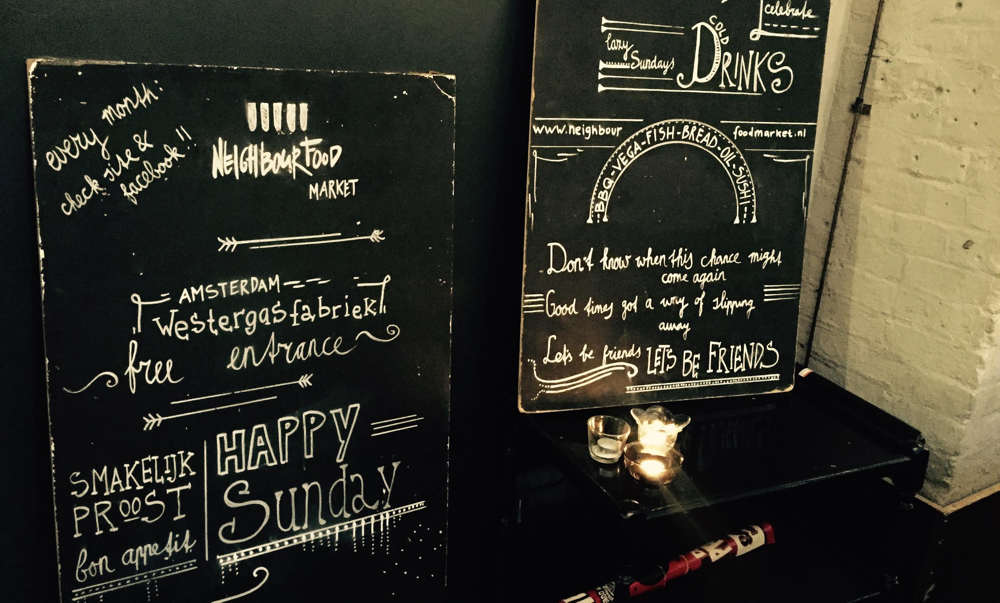 every month:
check site &
facebook!!
NEIGHBOURFOOD
MARKET
AMSTERDAM
Westergasfabriek
free entrance
SMAKELIJK
PROOST
bon appetit
HAPPY
Sunday
celebrate
lazy
Sundays
COLD
DRINKS
www.neighbour
foodmarket.nl
BBQ-VEGA-FISH-BREAD-OIL-SUSHI-
Don't know when this chance might
come again
Good times got a way of slipping
away
Let's be friends LET'S BE FRIENDS